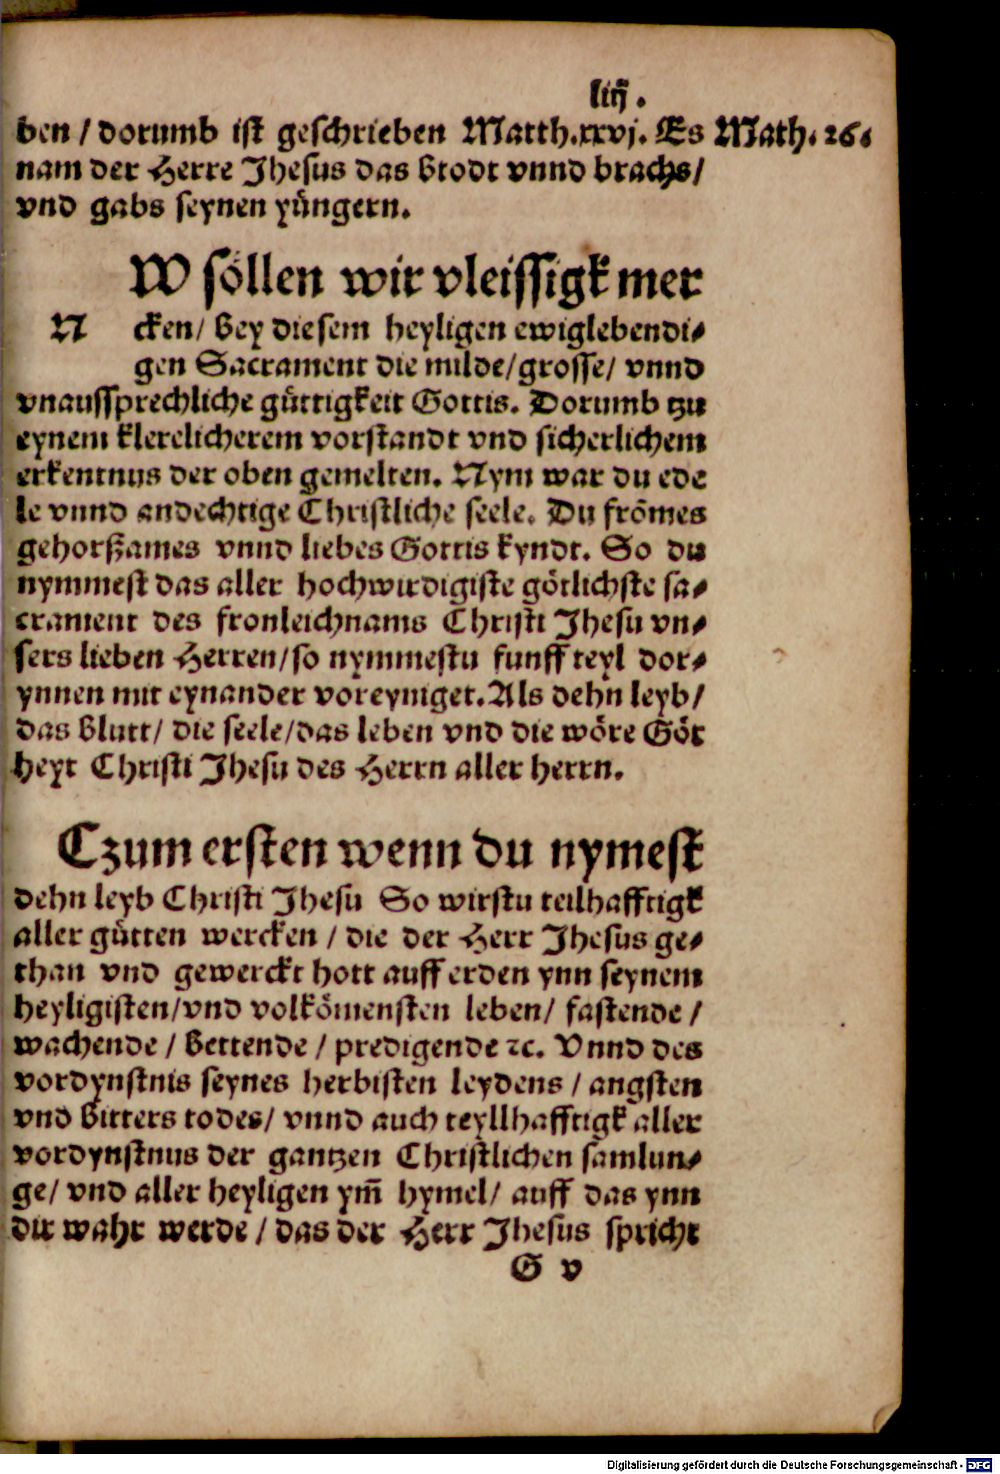 liij.
ben / dorumb ist geschrieben Matth.xxvj. Es Math. 26.
nam der Herre Jhesus das brodt vnnd brachs/
vnd gabs seynen yůngern.
W söllen wir vleissigk mer
N cken/ bey diesem heyligen ewiglebendi⸗
gen Sacrament die milde/grosse/ vnnd
vnaussprechliche gůttigkeit Gottis. Dorumb tzu
eynem klerelicherem vorstandt vnd sicherlichem
erkentnus der oben gemelten. Nym war du ede
le vnnd andechtige Christliche seele. Du frömes
gehorßames vnnd liebes Gottis kyndt. So du
nymmest das aller hochwirdigiste götlichste sa⸗
crament des fronleichnams Christi Jhesu vn⸗
sers lieben Herren/so nymmestu funff teyl dor⸗
ynnen mit eynander voreyniget. Als dehn leyb/
das blutt/ die seele/das leben vnd die wöre Göt
heyt Christi Jhesu des Herrn aller herrn.
Czum ersten wenn du nymest
dehn leyb Christi Jhesu So wirstu teilhafftigk
aller gůtten wercken / die der Herr Jhesus ge⸗
than vnd gewerckt hott auff erden ynn seynem
heyligisten/vnd volkömensten leben/ fastende /
wachende / bettende / predigende ꝛc. Vnnd des
vordynstnis seynes herbisten leydens / angsten
vnd bitters todes/ vnnd auch teyllhafftigk aller
vordynstnus der gantzen Christlichen samlun⸗
ge/ vnd aller heyligen ym̃ hymel/ auff das ynn
dir wahr werde / das der Herr Jhesus spricht
G v
Digitalisierung gefördert durch die Deutsche Forschungsgemeinschaft - DFG